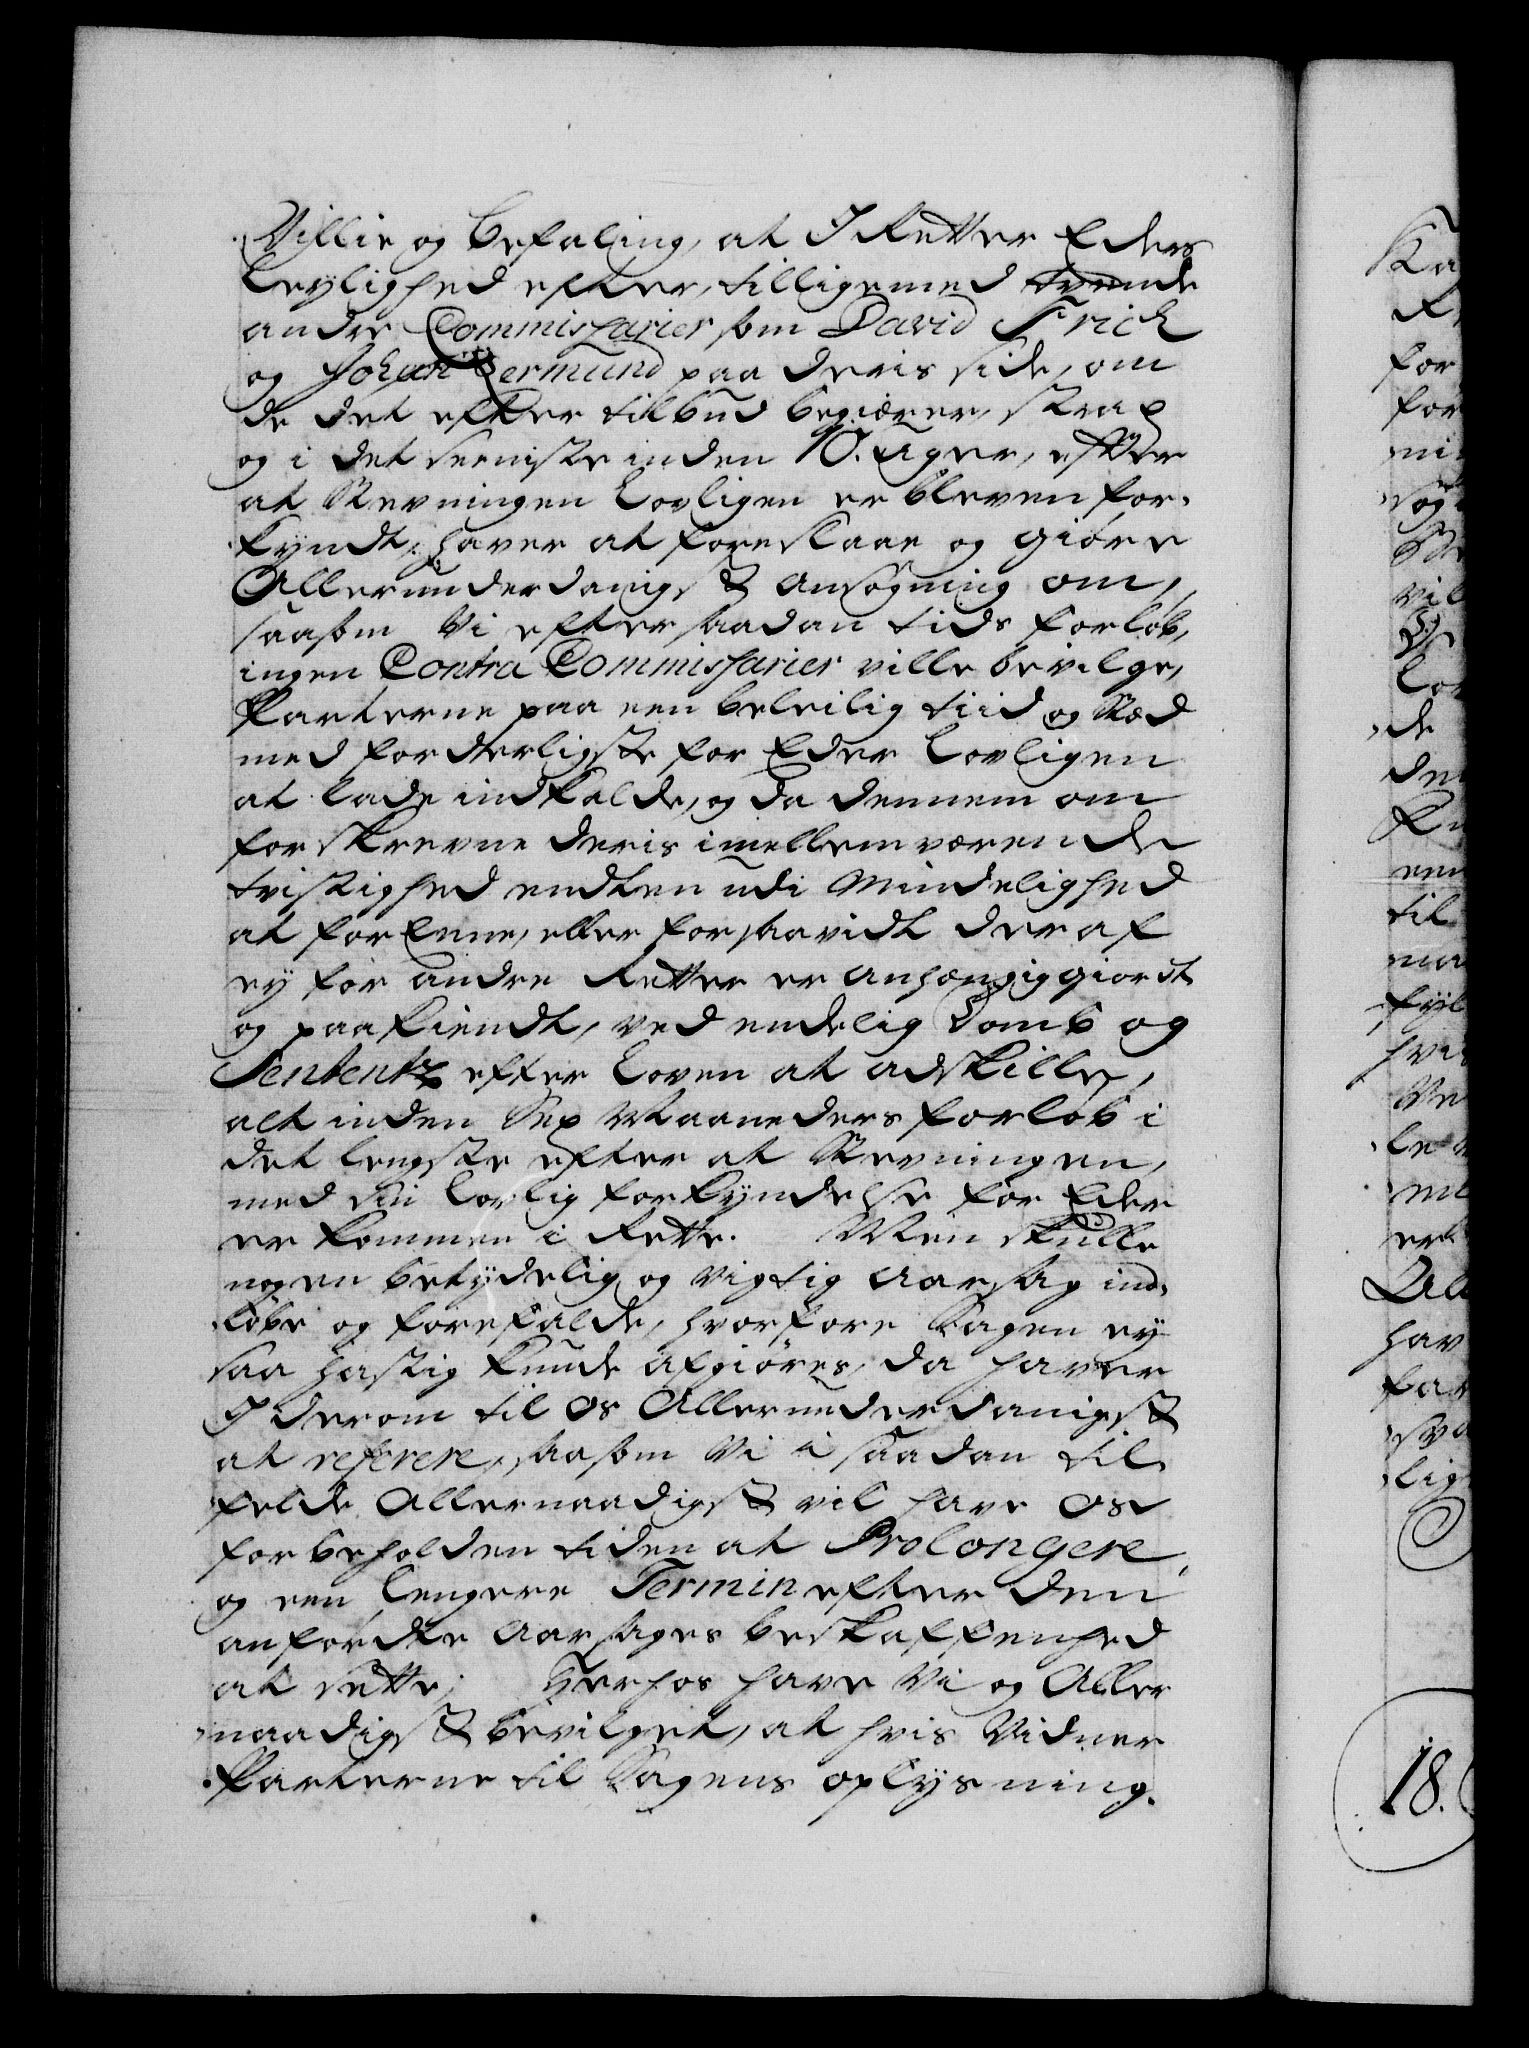 Villie og Befaling, at I Retter Eders
leylighed efter, tilligemed tvende
andre Commissarier som David Frick
og Johan Vermund paa deris side, om
de det efter tilbud begiærer, strax
og i det seeniste inden 10. uger, efter
at Stevningen Lovligen er bleven for-
kyndt, haver at foreslaae og giøre
Allerunderdanigst ansøgning om,
saasom Vi efter saadan tids forløb,
ingen Contra Commissarier ville bevilge,
Parterne paa een beleilig tiid og stæd
med forderligste for Eder Lovligen
at lade indkalde, og da dennem om
forskrevne deris imellem værende
tvistighed endten udi Mindelighed
at forEene, eller forsaavidt deraf
ey for andre Retter er anhængiggiordt
og paakiendt, ved endelig Domb og
Sententz efter Loven at adskille,
alt inden Sex Maaneders forløb i
det lengste efter at Stevningen,
med sin lovlig forkyndelse for Eder
er kommen i Rette. Men skulle
nogen betydelig og vigtig aarsag ind-
løbe og forefalde, hvorfore Sagen ey
saa hastig kunde afgiøres, da haver
I derom til os Allerunderdanigst
at referere, saasom Vi i saadan til-
felde Allernaadigst vil have os
forbeholden tiden at Prolongere,
og een lengere Termin efter den
anfordte aarsages beskaffenhed
at sette; Herhos have Vi og Aller
naadigst bevilget, at hvis Vidner
Parterne til Sagens oplysning.
18.